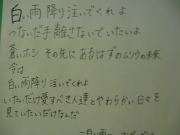 白い雨 降り注いでくれよ
つないだ手 離さないでいたいよ
蒼いホシ その先にあるはずのふりつの未来
今は
白い雨 降り注いでくれよ
いたいだけ愛すべき人達とやわらかい日々を
見ていたいだけなんだ